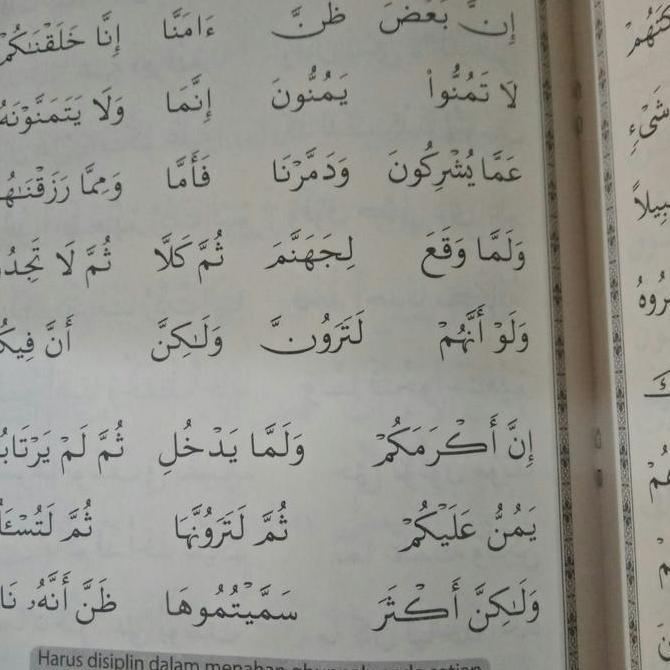 إِنَّ بَعْضَ ظَنَّ ءَامَنَّا إِنَّا خَلَقْنَٰكُمْ
لَا تَمُنُّوا۟ يَمُنُّونَ إِنَّمَا وَلَا يَتَمَنَّوْنَهُ
عَمَّا يُشْرِكُونَ وَدَمَّرْنَا فَأَمَّا وَمِمَّا رَزَقْنَٰهُ
وَلَمَّا وَقَعَ لِجَهَنَّمَ ثُمَّ كَلَّا ثُمَّ لَا
وَلَوْ أَنَّهُمْ لَتَرَوُنَّ وَلَٰكِنَّ أَنَّ
إِنَّ أَكْرَمَكُمْ وَلَمَّا يَدْخُلِ ثُمَّ لَمْ
يَمُنُّ عَلَيْكُمْ ثُمَّ لَتَرَوُنَّهَا ثُمَّ
وَلَٰكِنَّ أَكْثَرَ سَمَّيْتُمُوهَا ظَنَّ أَنَّهُۥ
Harus disiplin dalam menahan
شَىْءٍ